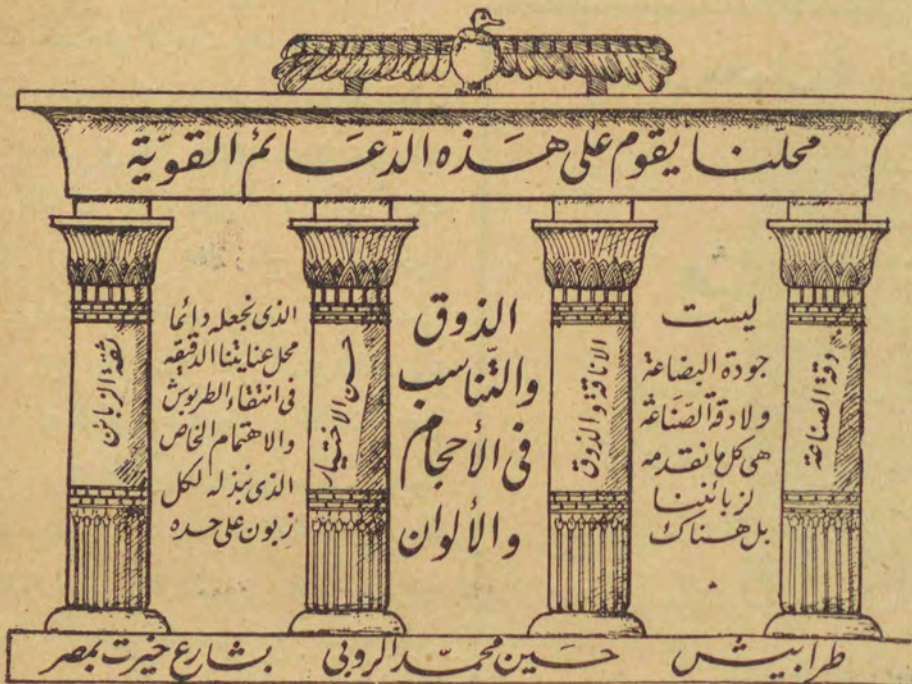 محلّنا يقوم على هذه الدّعائم القويّة
دقة الصناعة
ليست
جودة البضاعة
ولا دقة الصّناعة
هى كل ما نقدمه
لزبائننا
بل هناك
الاناقة والذوق
الذوق
والتّناسب
فى الأحجام
والألوان
حسن الاختيار
الذى نجعله دائما
محل عنايتنا الدقيقه
فى انتقاء الطربوش
والاهتمام الخاص
الذى نبذله لكل
زبون على حده
ثقة الزبائن
طرابيش حسين محمّد الروبى بشارع خيرت بمصر